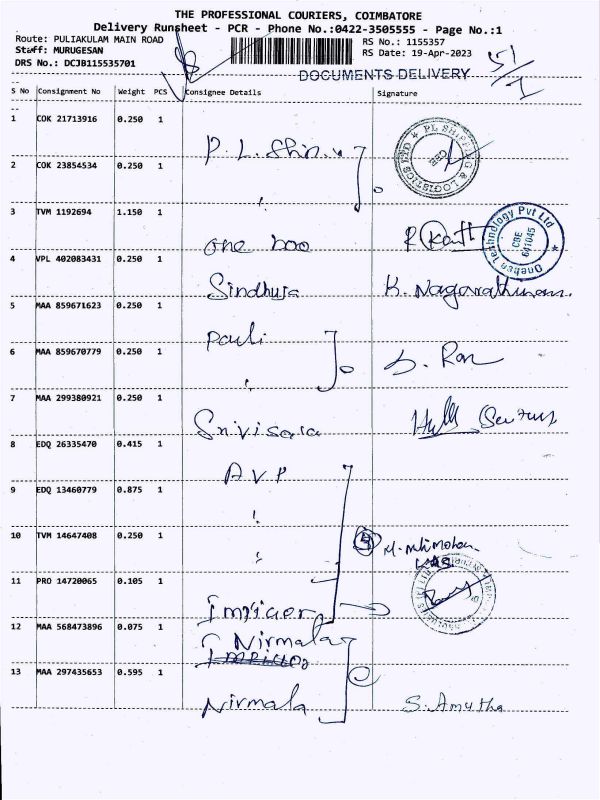 THE PROFESSIONAL COURIERS, COIMBATORE
Delivery Runsheet - PCR - Phone No.:0422-3505555 - Page No.:1
Route: PULIAKULAM MAIN ROAD
RS No.: 1155357
Staff: MURUGESAN
RS Date: 19-Apr-2023
DRS No.: DCJB115535701
DOCUMENTS DELIVERY
S No Consignment No Weight PCS Consignee Details Signature
1 COK 21713916 0.250 1 P.L. Shin
PL SHIPPING & LOGISTICS LTD
2 COK 23854534 0.250 1
3 TVM 1192694 1.150 1 one boo
Technology Pvt Ltd
CBE
641045
4 VPL 402083431 0.250 1 Sindhuja K. Nagarathinam
5 MAA 859671623 0.250 1 Pauli
6 MAA 859670779 0.250 1
7 MAA 299380921 0.250 1 Srivisara
8 EDQ 26335470 0.415 1 A.V.P
9 EDQ 13460779 0.875 1
10 TVM 14647408 0.250 1
11 PRO 14720065 0.105 1
12 MAA 568473896 0.075 1 Nirmala
13 MAA 297435653 0.595 1 Nirmala S. Amutha